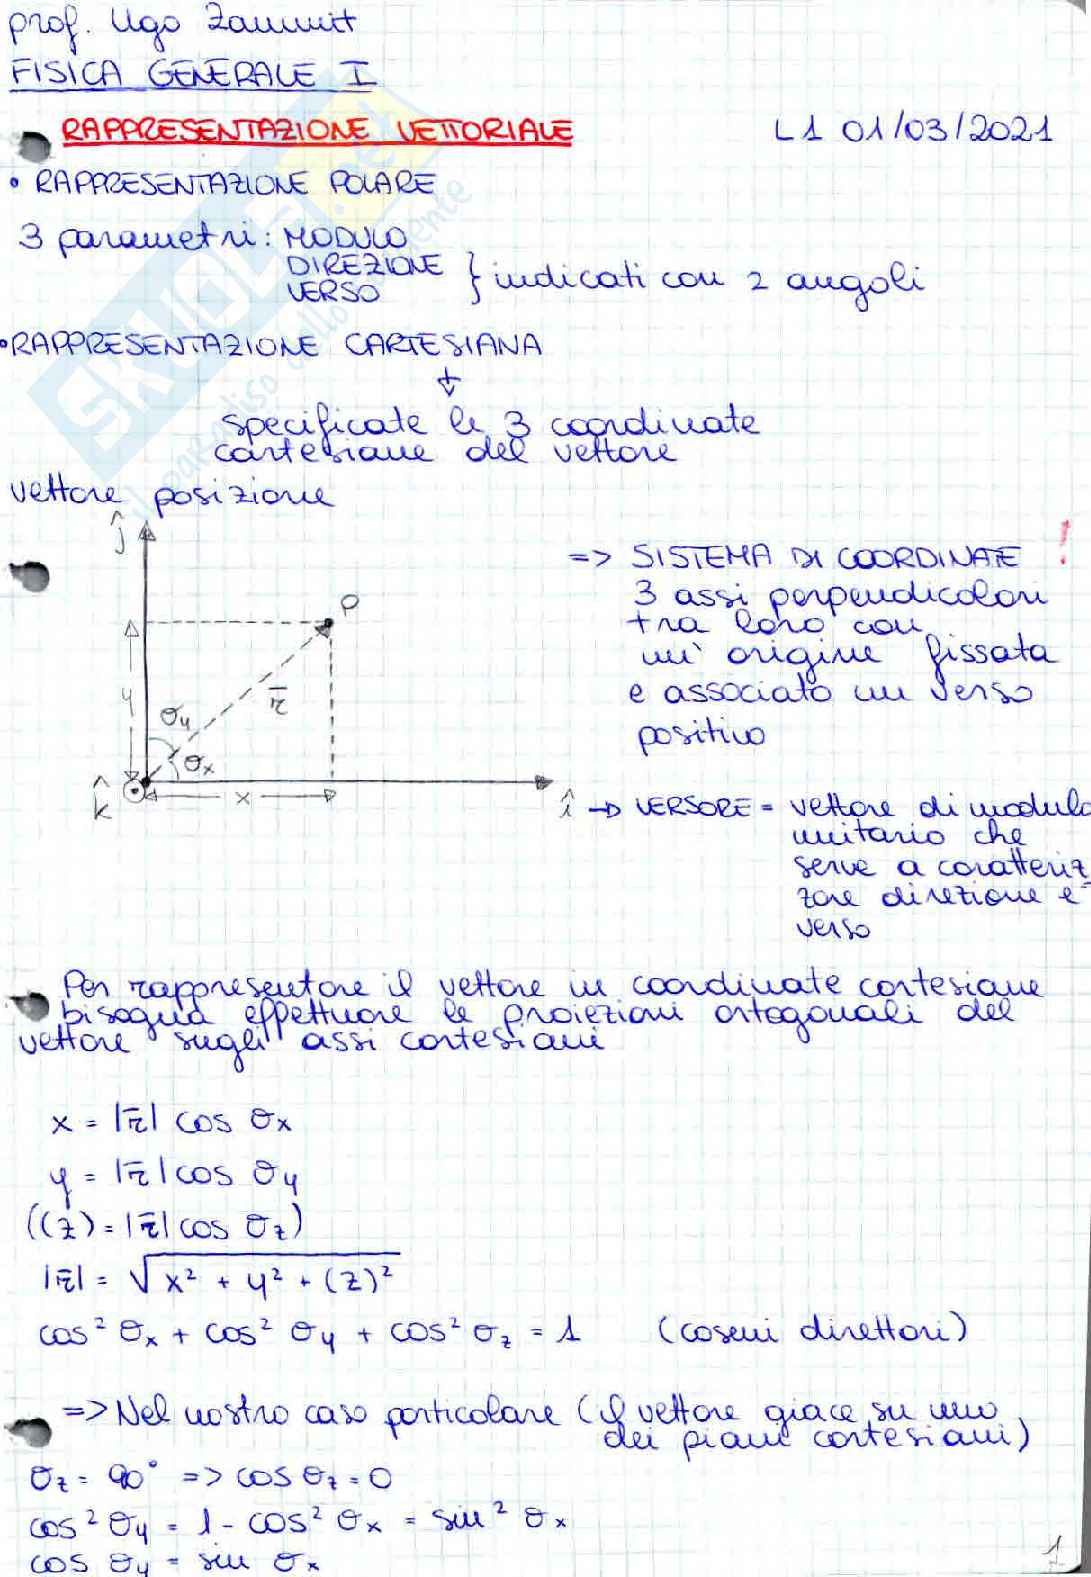 prof. Ugo Zammit
FISICA GENERALE I
RAPPRESENTAZIONE VETTORIALE L1 01/03/2021
• RAPPRESENTAZIONE POLARE
3 parametri: MODULO
DIREZIONE
VERSO } indicati con 2 angoli
• RAPPRESENTAZIONE CARTESIANA
↓
specificate le 3 coordinate
cartesiane del vettore
vettore posizione
ĵ
P
y
r̄
θy
θx
k̂
x
î
=> SISTEMA DI COORDINATE !
3 assi perpendicolari
tra loro con
un' origine fissata
e associato un verso
positivo
→ VERSORE = vettore di modulo
unitario che
serve a caratteriz
zare direzione e
verso
Per rappresentare il vettore in coordinate cartesiane
bisogna effettuare le proiezioni ortogonali del
vettore sugli assi cartesiani
x = |r̄| cos θx
y = |r̄| cos θy
((z) = |r̄| cos θz)
|r̄| = √x² + y² + (z)²
cos² θx + cos² θy + cos² θz = 1 (coseni direttori)
=> Nel nostro caso particolare (il vettore giace su uno
dei piani cartesiani)
θz = 90° => cos θz = 0
cos² θy = 1 - cos² θx = sin² θx
cos θy = sin θx
1
SKUOLA.net
il paradiso dello studente